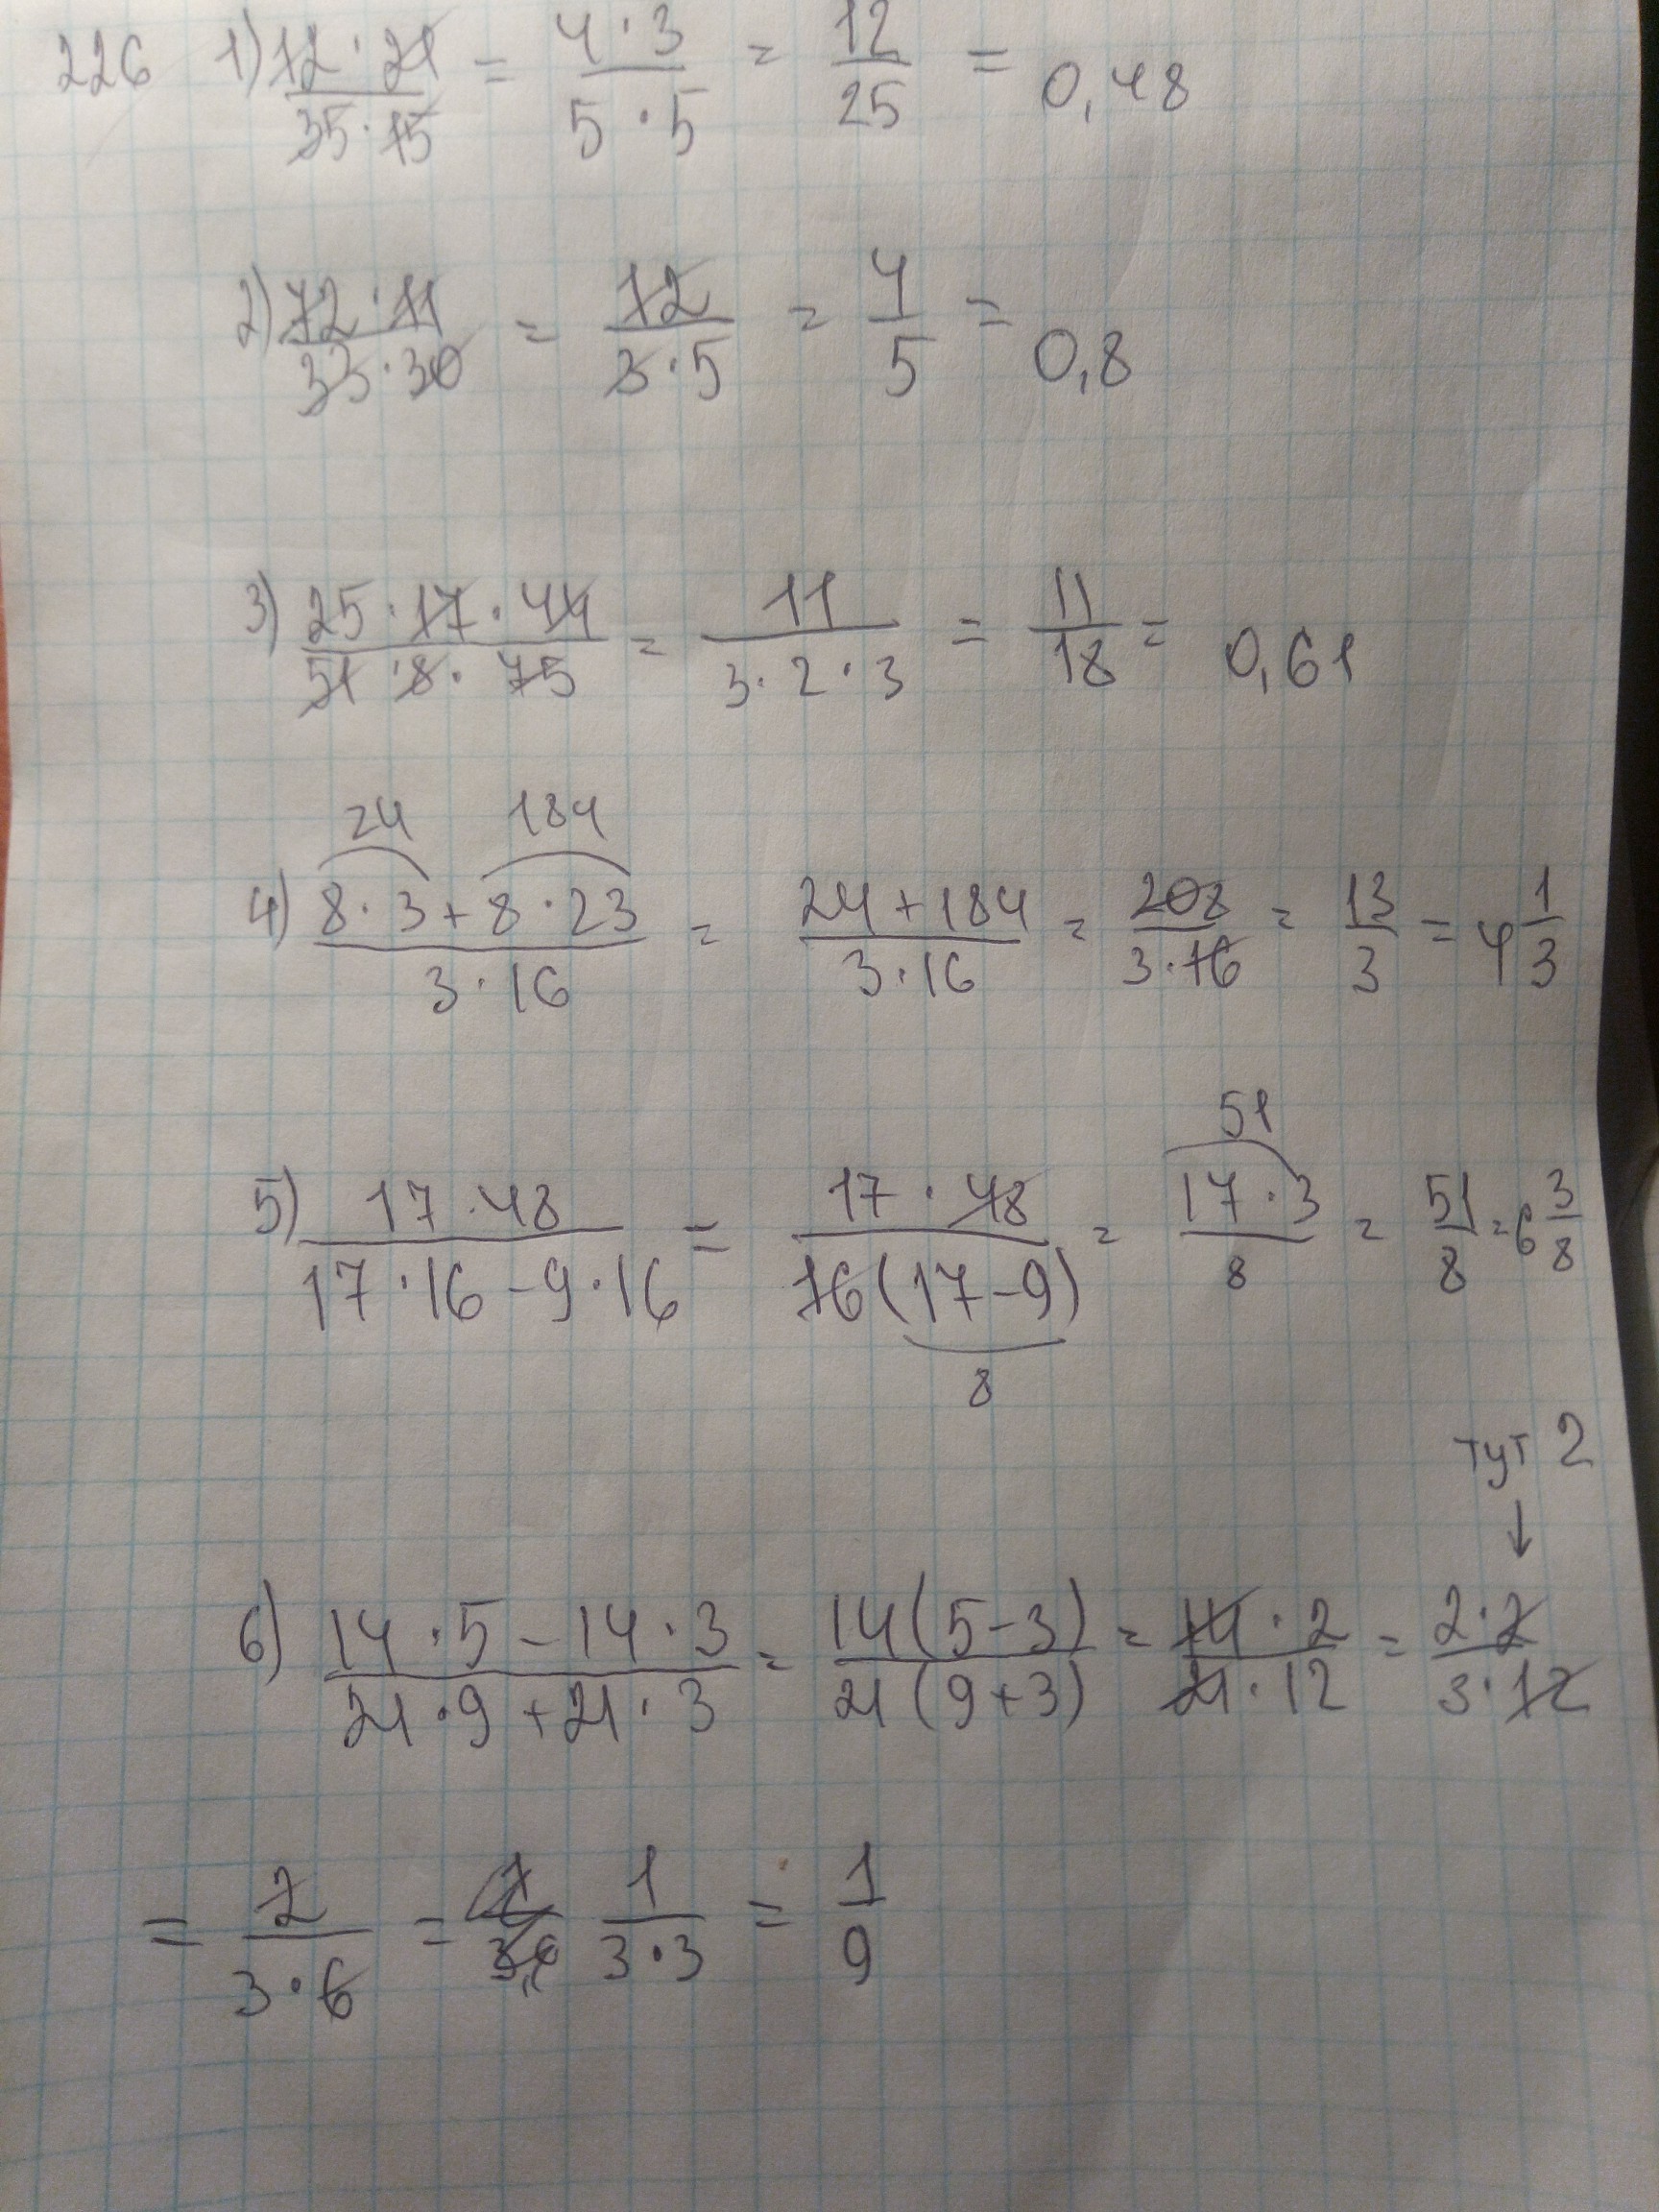 226 1) 12·21/35·15 = 4·3/5·5 = 12/25 = 0,48
2) 72·11/33·30 = 12/3·5 = 4/5 = 0,8
3) 25·17·44/51·8·75 = 11/3·2·3 = 11/18 = 0,61
24 184
4) 8·3+8·23/3·16 = 24+184/3·16 = 208/3·16 = 13/3 = 4 1/3
51
5) 17·48/17·16-9·16 = 17·48/16(17-9) = 17·3/8 = 51/8 = 6 3/8
8
тут 2
↓
6) 14·5-14·3/21·9+21·3 = 14(5-3)/21(9+3) = 14·2/21·12 = 2·2/3·12
= 2/3·6 = 1/3·3 = 1/9